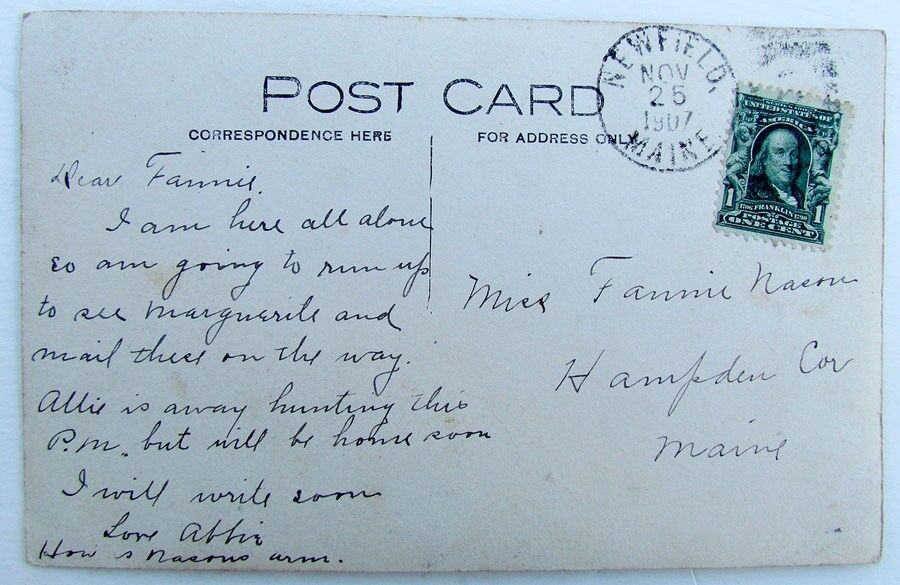 POST CARD
CORRESPONDENCE HERE
FOR ADDRESS ONLY
NEWFIELD,
NOV
25
1907
MAINE
UNITED STATES OF
AMERICA
1706 FRANKLIN 1790
1 POSTAGE 1
ONE CENT
Dear Fannie.
I am here all alone
so am going to run up
to see Marguerite and
mail these on the way.
Allie is away hunting this
P.M. but will be home soon
I will write soon
Love Abbie
How s Nasons arm.
Miss Fannie Nason
Hampden Cor
Maine